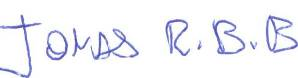 JONAS R.B.B